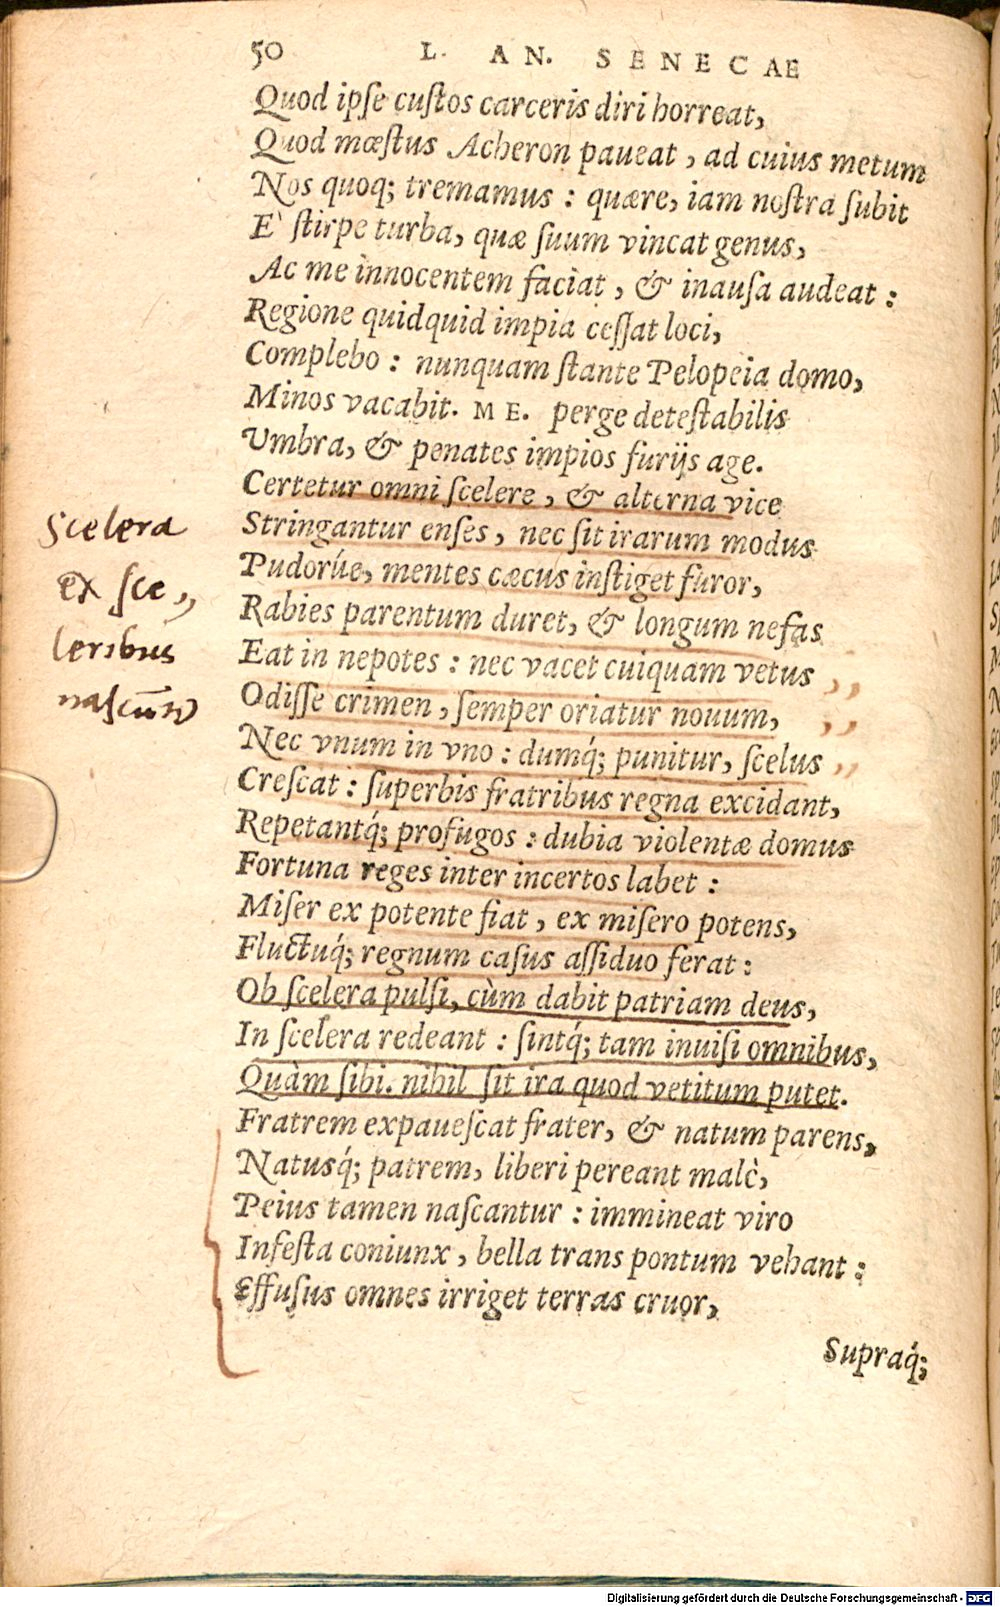 50 L. AN. SENECAE
Quod ipſe cuſtos carceris diri horreat,
Quod mæſtus Acheron paueat, ad cuius metum
Nos quoq; tremamus: quære, iam noſtra ſubit
E` ſtirpe turba, quæ ſuum vincat genus,
Ac me innocentem faciat, & inauſa audeat:
Regione quidquid impia ceſſat loci,
Complebo: nunquam ſtante Pelopeia domo,
Minos vacabit. ME. perge deteſtabilis
Vmbra, & penates impios furijs age.
Certetur omni ſcelere, & alterna vice
Stringantur enſes, nec ſit irarum modus
Pudorúe, mentes cæcus inſtiget furor,
Rabies parentum duret, & longum nefas
Eat in nepotes: nec vacet cuiquam vetus
Odiſſe crimen, ſemper oriatur nouum,
Nec vnum in vno: dumq́; punitur, ſcelus
Creſcat: ſuperbis fratribus regna excidant,
Repetantq́; profugos: dubia violentæ domus
Fortuna reges inter incertos labet:
Miſer ex potente fiat, ex miſero potens,
Fluctuq́; regnum caſus aſſiduo ferat:
Ob ſcelera pulſi, cùm dabit patriam deus,
In ſcelera redeant: ſintq́; tam inuiſi omnibus,
Quàm ſibi. nihil ſit ira quod vetitum putet.
Fratrem expaueſcat frater, & natum parens,
Natusq́; patrem, liberi pereant malè,
Peius tamen naſcantur: immineat viro
Infeſta coniunx, bella trans pontum vehant:
Effuſus omnes irriget terras cruor,
Supraq́;
Scelera
ex ſce„
leribus
naſcūtr
Digitalisierung gefördert durch die Deutsche Forschungsgemeinschaft - DFG